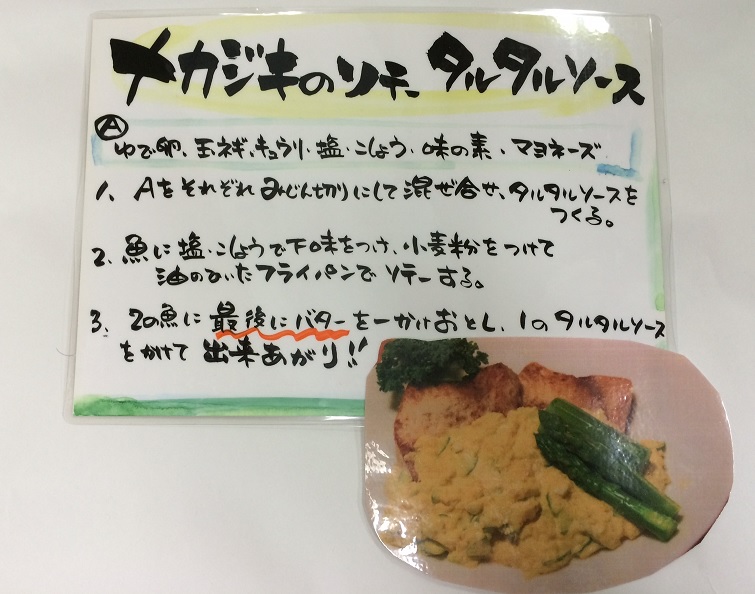 メカジキのソテー タルタルソース
Ⓐ
ゆで卵、玉ネギ、キュウリ・塩・こしょう・味の素・マヨネーズ
1、Aをそれぞれみじん切りにして混ぜ合せ、タルタルソースを
つくる。
2、魚に塩・こしょうで下味をつけ、小麦粉をつけて
油のひいたフライパンでソテーする。
3、2の魚に最後にバターを一かけおとし、1のタルタルソース
をかけて出来あがり!!